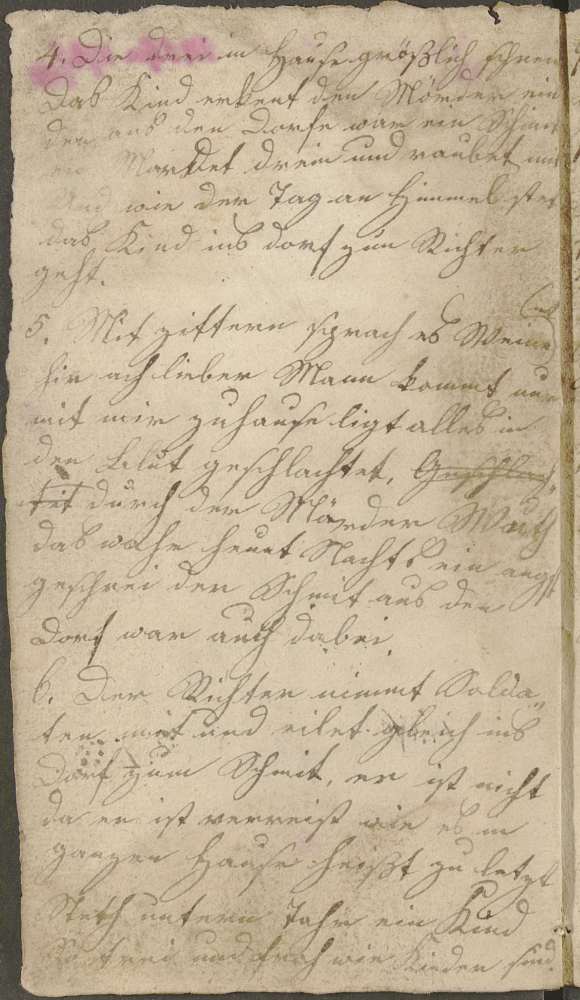 4. Die drei im Hause größlich schrein
Das Kind erkent den Mörder ein
der aus den Dorfe war ein Schmit
ein Markdet drein und raubet mit
Und wie der Tag an Himmel steh
das Kind ins dorf zum Richter
geht.
5. Mit zittern sprach es Weine
hin ach lieber Mann kommt nur
mit mir zuhause ligt alles in
den Blut geschlachtet, Geschlach
tet durch der Mörder Wuth
das wahr heunt Nachts ein angst
geschrei der Schmit aus den
Dorf war auch dabei
6. Der Richter nimmt Solda„
ten mit und eilet gleich ins
Dorf zum Schmit, er ist nicht
da er ist verreist wie es in
ganzen Hause heißt zu letzt
Steth untern Jahr ein Kind
so frei und froh wie Kinder sind.